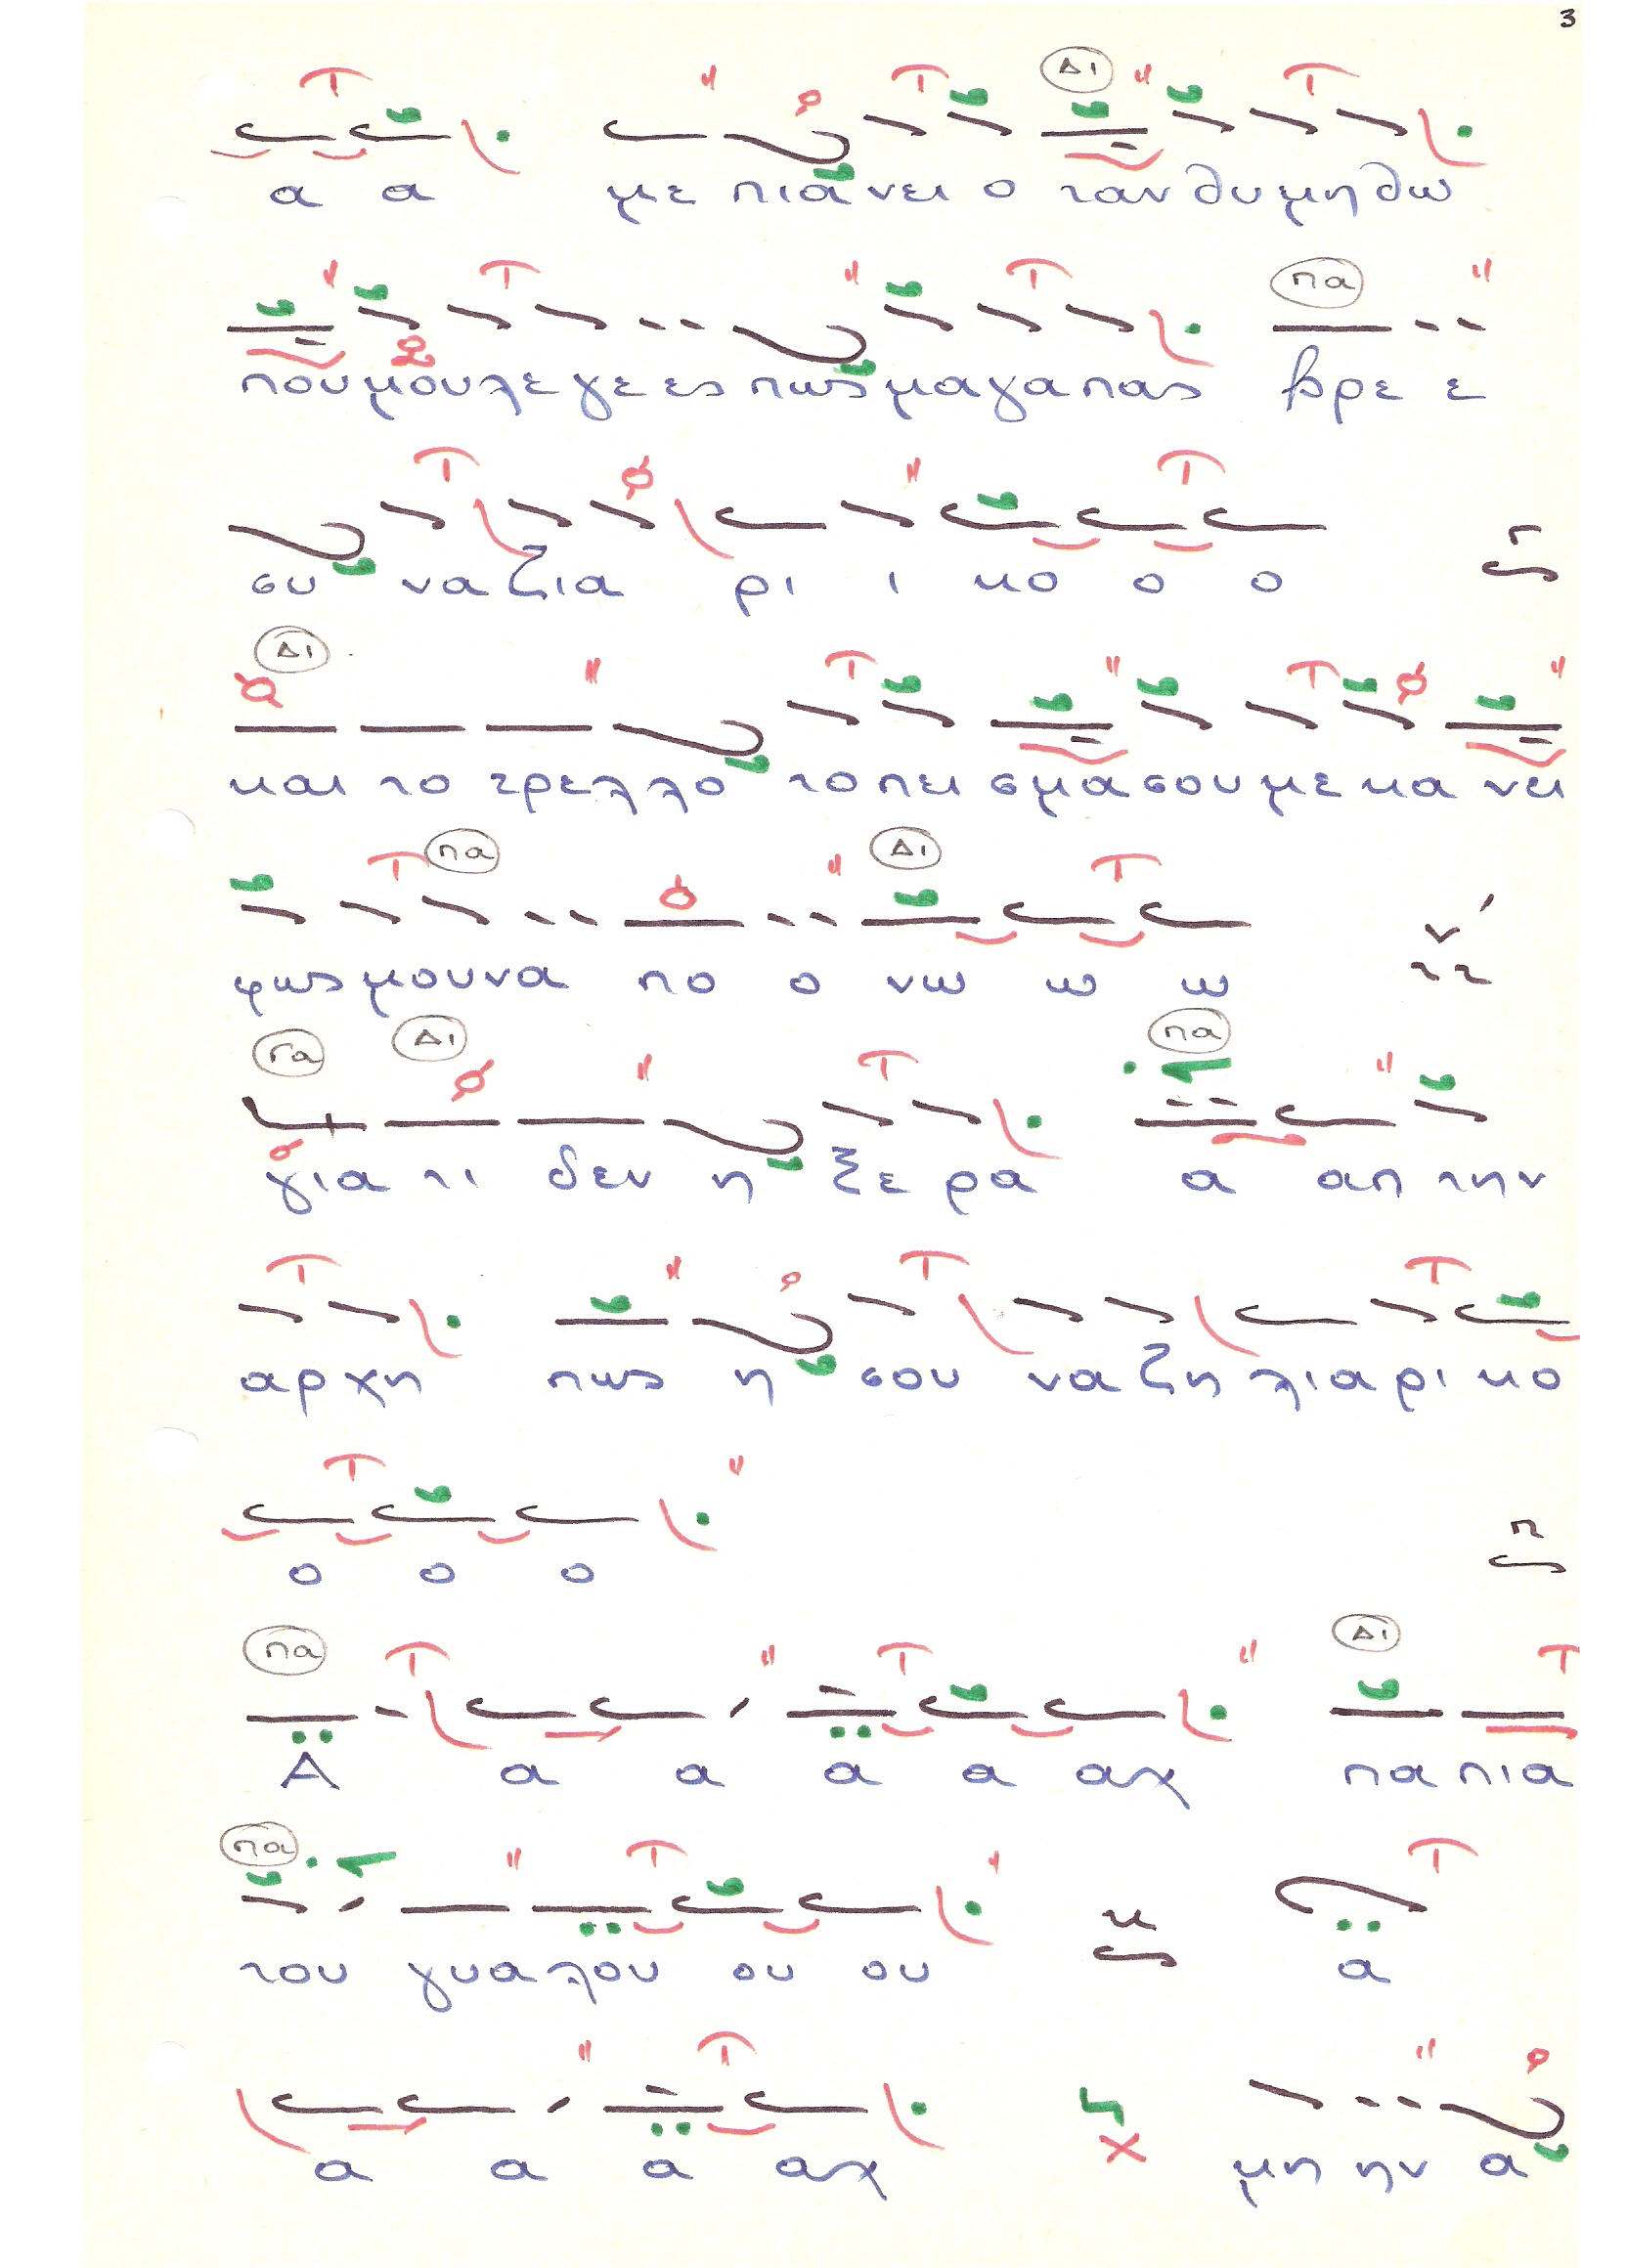 3
Δι
α α με πια νει ο ταν θυ μη θω
πα
που μου λε γε ες πως μα γα πας βρε ε
συ να ζια ρι ι κο ο ο
Δι
και το τρελ λο το πει σμα σου με κα νει
πα Δι
φως μου να πο ο νω ω ω
Γα Δι πα
για τι δεν η ξε ρα α απ την
αρ χη πως η σου να ζη λια ρι κο
ο ο ο
πα Δι
Α α α α α αχ πα πια
πα
του γυα λου ου ου α
α α α αχ μη ην α